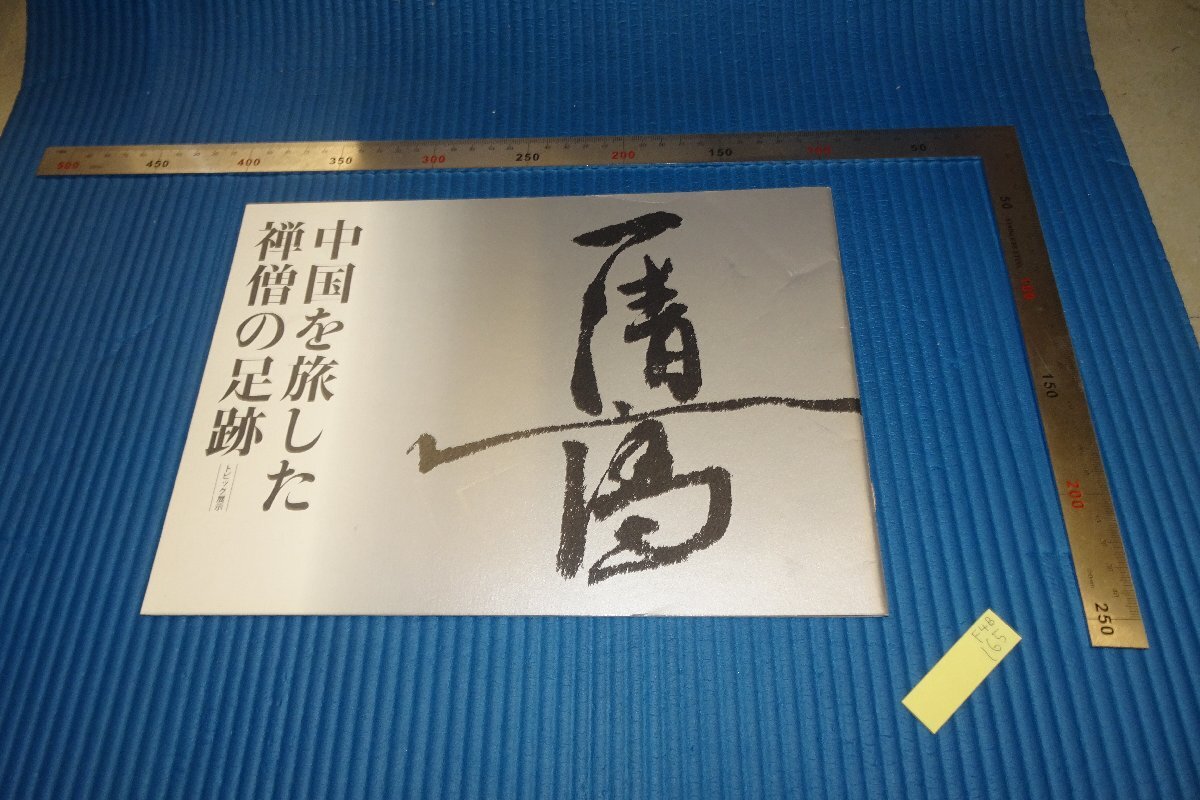 500 450 400 350 300 250 200 150 100 50
50
100
150
200
250
中国を旅した
禅僧の足跡
トピック展示